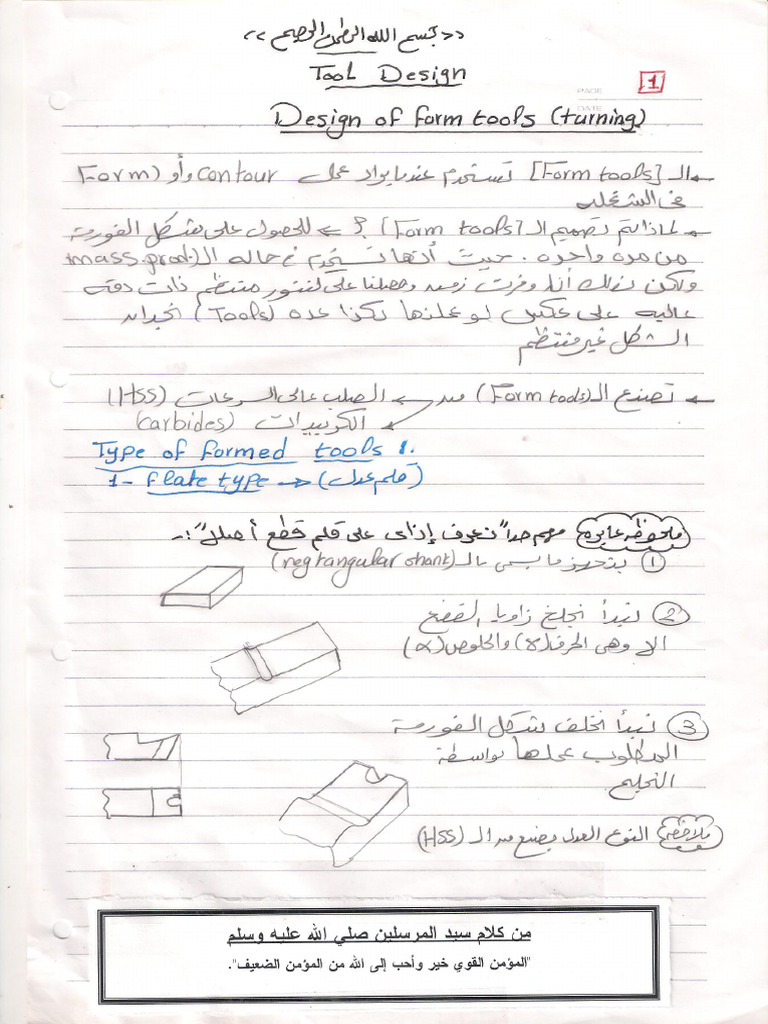 << بسم الله الرحمن الرحيم >>
Tool Design
1
PAGE
DATE
Design of form tools (turning)
الـ [Form tools] تستخدم عندما يراد عمل contour وأو (Form
فى الشغله
لماذا تم تصميم الـ [Form tools] ؟ ← للحصول على شكل الفورمة
من مره واحده . حيث أنها تستخدم فى حاله الـ (mass.prod
ولكن بذلك وفرت زمن وحصلنا على منتظم ذات دقه
عاليه على عكس لو عملنها بكذا عده (Tools)
الشكل غير منتظم
تصنع الـ (Form tools) من الصلب عالى السرعات (HSS)
الكربيدات (carbides)
Type of formed tools :.
1- flate type → (قلم عدل)
ملحوظه عابره مهم جدا" نعرف إزاى على قلم قطع أصلا" :-
① بتجهيز ما يسمى بالـ (regtangular shank)
② نبدأ نجلخ زاويا القطع
الا وهى الجرف (γ) والخلوص (α)
③ نبدأ شكل الفورمة
المطلوب عملها بواسطة
التجليخ
ملاحظه النوع العدل يصنع من الـ (HSS)
من كلام سيد المرسلين صلي الله عليه وسلم
"المؤمن القوي خير وأحب إلى الله من المؤمن الضعيف".